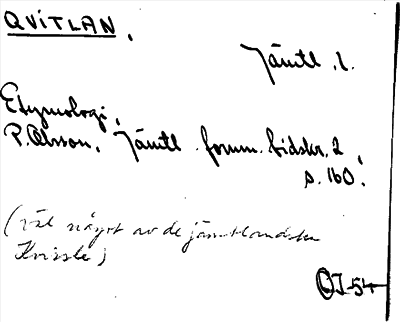 QVITLAN.
Jämtl. l.
Etymologi.
P. Olsson, Jämtl. fornm. tidskr. 2,
s. 160.
(väl något av de jämtländska
Kvissle)
OJ-54